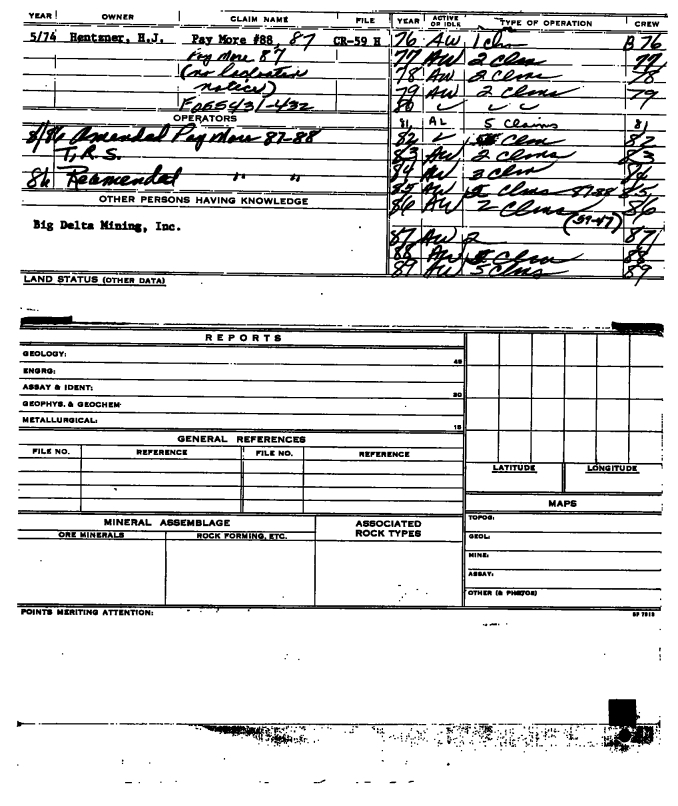 YEAR OWNER CLAIM NAME FILE
5/74 Hentzner, H.J. Pay More #88 87 CR-59 H
Pay More 87
(no location
notice)
F065431-432
OPERATORS
8/86 Amended Pay More 87-88
T,R.S.
86 Reamended " "
OTHER PERSONS HAVING KNOWLEDGE
Big Delta Mining, Inc.
LAND STATUS (OTHER DATA)
YEAR ACTIVE OR IDLE TYPE OF OPERATION CREW
76 AW 1 clm B 76
77 AW 2 Clms 77
78 AW 2 Clms 78
79 AW 2 Clms 79
80
81 AL 5 Claims 81
82 Clm 82
83 AW 2 Clms 83
84 AW 2 Clm 84
85 AW Clms 87-88 85
86 AW 2 Clms 86
(59-47)
87 AW 2 87
88 AW Clm 88
89 AW 5 Clms 89
REPORTS
GEOLOGY: 45
ENGRG:
ASSAY & IDENT: 30
GEOPHYS. & GEOCHEM
METALLURGICAL: 15
GENERAL REFERENCES
FILE NO. REFERENCE FILE NO. REFERENCE
LATITUDE LONGITUDE
MAPS
TOPOG:
GEOL:
MINE:
ASSAY:
OTHER (& PHOTOS)
MINERAL ASSEMBLAGE
ORE MINERALS ROCK FORMING, ETC.
ASSOCIATED
ROCK TYPES
POINTS MERITING ATTENTION:
SP 7915